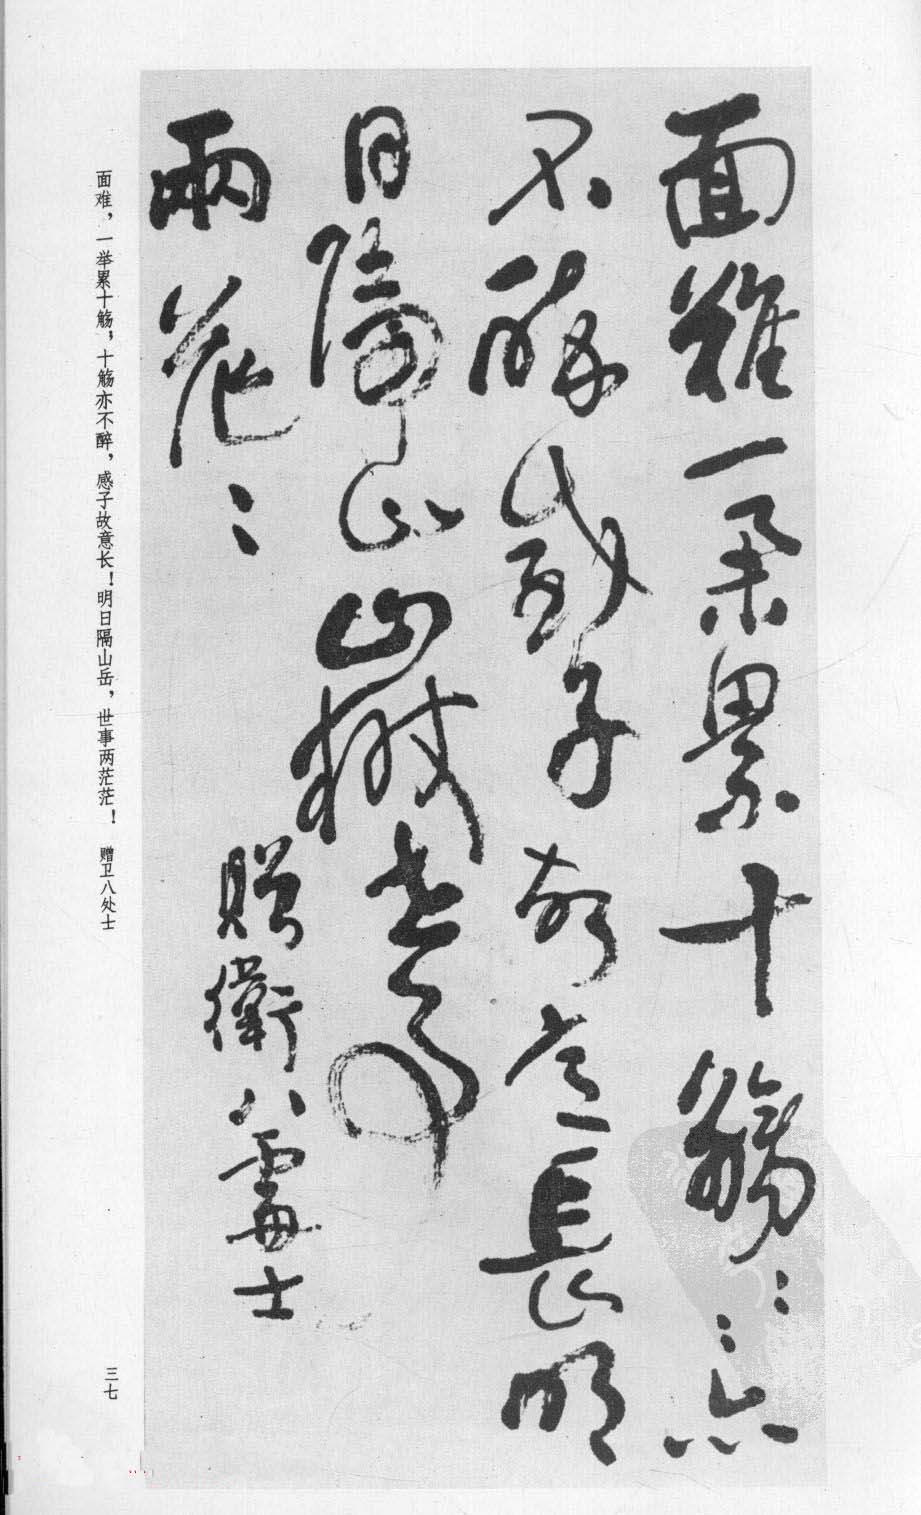 面難一舉累十觴〻〻亦
不醉感子故意長明
日隔山嶽世事
兩茫〻
贈衛八處士
面难，一举累十觞，十觞亦不醉，感子故意长！明日隔山岳，世事两茫茫！　赠卫八处士
三七